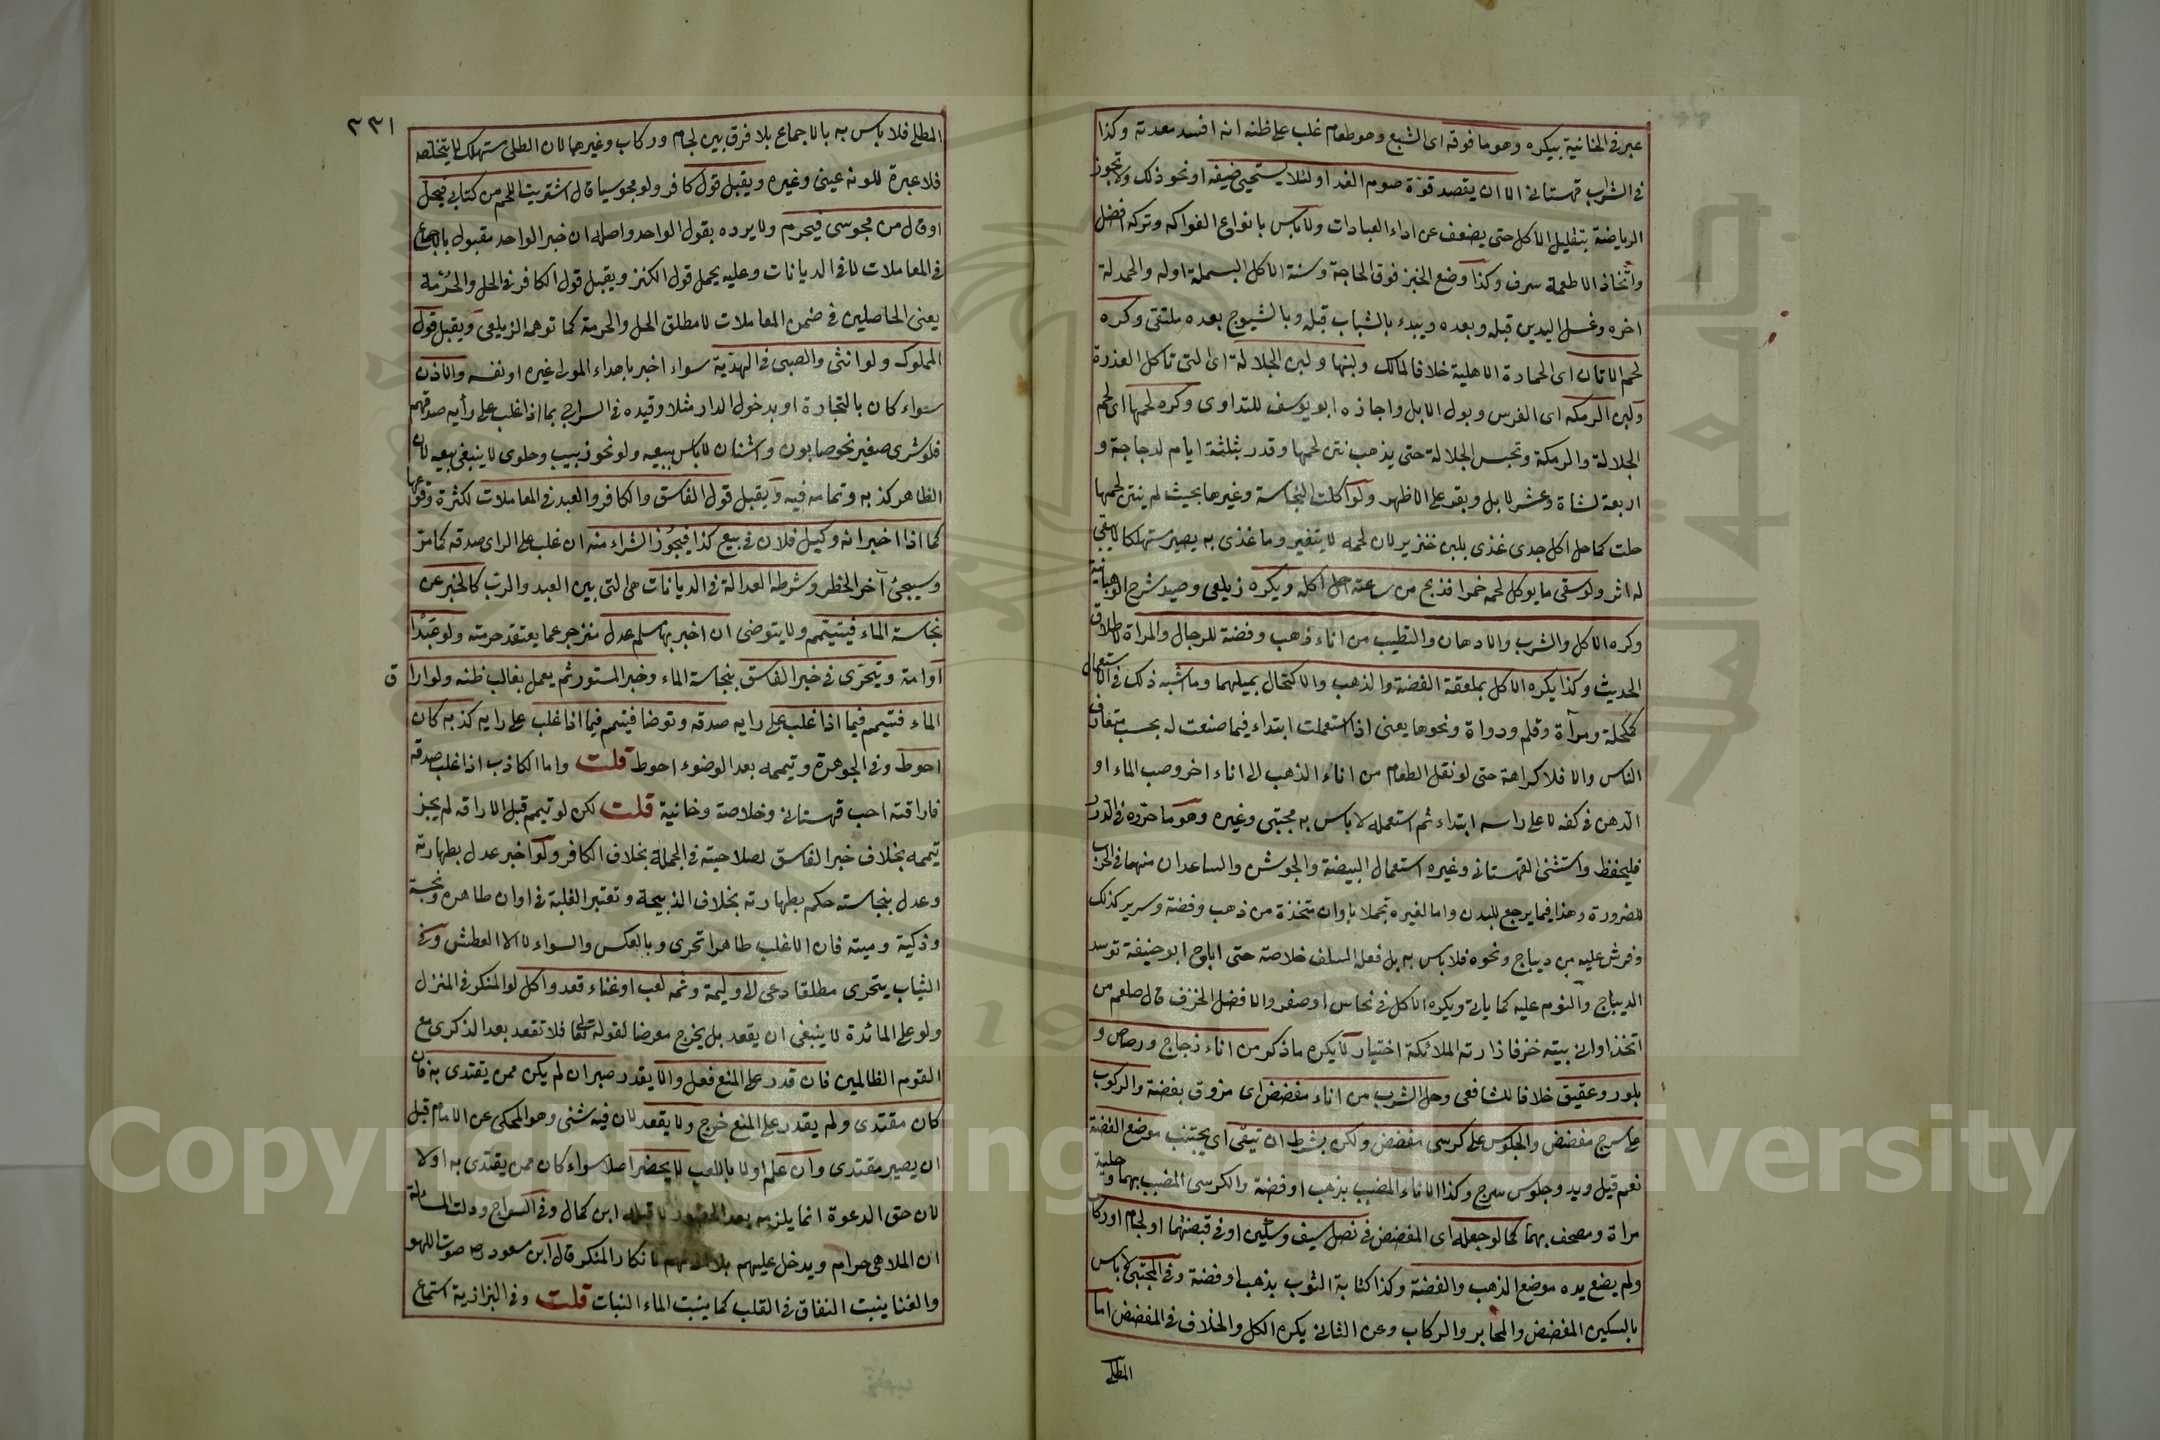 عبر في الخانية بيكره وهو ما فوقه اى الشبع وهو طعام غلب على ظنه انه افسد معدته وكذا
في الشراب قهستاني الا ان يقصد قوة صوم الغد او لئلا يستحيى ضيفه او نحو ذلك ولا تجوز
الرياضة بتقليل الاكل حتى يضعف عن اداء العبادات ولا باس بانواع الفواكه وتركه افضل
واتخاذ الاطعمة سرف وكذا وضع الخبز فوق الحاجة وسنة الاكل البسملة اوله والحمدلة
اخره وغسل اليدين قبله وبعده ويبدء بالشباب قبله وبالشيوخ بعده ملتقى وكره
لحم الاتان اى الحمارة الاهلية خلافا لمالك ولبنها ولبن الجلالة اى التي تاكل العذرة
ولبن الرمكه اى الفرس وبول الابل واجازه ابو يوسف للتداوى وكره لحمها اى لحم
الجلالة والرمكة وتحبس الجلالة حتى يذهب نتن لحمها وقدر بثلثة ايام لدجاجة و
اربعة لشاة وعشر لابل وبقر على الاظهر ولو اكلت النجاسة وغيرها بحيث لم ينتن لحمها
حلت كما حل اكل جدى غذى بلبن خنزير لان لحمه لا يتغير وما غذى به يصير مستهلكا لا يبقى
له اثر ولو سقى ما يوكل لحمه خمرا فذبح من ساعته حل اكله ويكره زيلعى وصيد شرح الوهبانية
وكره الاكل والشرب والادهان والتطيب من اناء ذهب وفضة للرجال والمراة لاطلاق
الحديث وكذا يكره الاكل بملعقة الفضة والذهب والاكتحال بميلهما وما اشبه ذلك في الاستعمال
كمكحلة ومرآة وقلم ودواة ونحوها يعنى اذا استعملت ابتداء فيما صنعت له بحسب متعارف
الناس والا فلا كراهة حتى لو نقل الطعام من اناء الذهب الى اناء اخر وصب الماء او
الدهن في كفه لا على راسه ابتداء ثم استعمله لا باس به مجتبى وغيره وهو ما حرره في الدرر
فليحفظ واستثنى القهستاني وغيره استعمال البيضة والجوشن والساعدان منهما في الحرب
للضرورة وهذا فيما يرجع للبدن واما لغيره تجملا باوان متخذة من ذهب وفضة وسرير كذلك
وفرش عليه من ديباج ونحوه فلا باس به بل فعله السلف خلاصة حتى اباح ابو حنيفة توسد
الديباج والنوم عليه كما ياتي ويكره الاكل في نحاس او صفر والافضل الخزف قال صلعم من
اتخذ اواني بيته خزفا زارته الملائكة اختيار لا يكره ما ذكر من اناء زجاج ورصاص و
بلور وعقيق خلافا للشافعى وحل الشرب من اناء مفضض اى مزوق بفضة والركوب
على سرج مفضض والجلوس على كرسى مفضض ولكن بشرط ان تيقى اى يجتنب موضع الفضة
نعم قيل ويد وجلوس سرج وكذا الاناء المضبب بذهب او فضة والكرسى المضبب بهما وحلية
مراة ومصحف بهما كما لو جعله اى المفضض في نصل سيف وسكين او في قبضتهما او لجام او ركاب
ولم يضع يده موضع الذهب والفضة وكذا كتابة الثوب بذهب او فضة وفي المجتبى لا باس
بالسكين المفضض والمحابر والركاب وعن الثاني يكره الكل والخلاف في المفضض اما
المطلى
٣٣١
المطلى فلا باس به بالاجماع بلا فرق بين لجام وركاب وغيرهما لان الطلى مستهلك لا يتخلص
فلا عبرة للونه عينى وغيره ويقبل قول كافر ولو مجوسيا قال اشتريت اللحم من كتابى فيحل
او قال من مجوسى فيحرم ولا يرده بقول الواحد واصله ان خبر الواحد مقبول بالاجماع
في المعاملات لا في الديانات وعليه يحمل قول الكنز ويقبل قول الكافر في الحل والحرمة
يعنى الحاصلين في ضمن المعاملات لا مطلق الحل والحرمة كما توهمه الزيلعى ويقبل قول
المملوك ولو انثى والصبى في الهدية سواء اخبر باهداء المولى غيره او نفسه والاذن
سواء كان بالتجارة او بدخول الدار مثلا وقيده في السراج بما اذا غلب على رأيه صدقهم
فلو شرى صغير نحو صابون واشنان لا باس ببيعه ولو نحو زبيب وحلوى لا ينبغى بيعه لان
الظاهر كذبه وتمامه فيه ويقبل قول الفاسق والكافر والعبد في المعاملات لكثرة وقوعها
كما اذا اخبر انه وكيل فلان في بيع كذا فيجوز الشراء منه ان غلب على الراى صدقه كما مر
وسيجئ آخر الحظر وشرط العدالة في الديانات هى التى بين العبد والرب كالخبر عن
نجاسة الماء فيتيمم ولا يتوضى ان اخبر بها مسلم عدل منزجر عما يعتقد حرمته ولو عبدا
او امة ويتحرى في خبر الفاسق بنجاسة الماء وخبر المستور ثم يعمل بغالب ظنه ولو اراق
الماء فتيمم فيما اذا غلب على رايه صدقه وتوضا فتيمم فيما اذا غلب على رايه كذبه كان
احوط وفي الجوهرة وتيممه بعد الوضوء احوط قلت واما الكاذب اذا غلب صدقه
فاراقته احب قهستاني وخلاصة وخانية قلت لكن لو تيمم قبل الاراقه لم يجز
تيممه بخلاف خبر الفاسق لصلاحيته في الجملة بخلاف الكافر ولو اخبر عدل بطهارته
وعدل بنجاسته حكم بطهارته بخلاف الذبيحة وتعتبر الغلبة في اوان طاهره ونجسة
وذكية وميتة فان الاغلب طاهرا تحرى وبالعكس والسواء لا الا العطش وفي
الثياب يتحرى مطلقا دعى الى وليمة وثمه لعب او غناء قعد واكل لو المنكر في المنزل
ولو على المائدة لا ينبغى ان يقعد بل يخرج معرضا لقوله تعالى فلا تقعد بعد الذكرى مع
القوم الظالمين فان قدر على المنع فعل والا يقدر صبر ان لم يكن ممن يقتدى به فان
كان مقتدى ولم يقدر على المنع خرج ولا يقعد لان فيه شنى وهو المحكى عن الامام قبل
ان يصير مقتدى وان علم اولا باللعب لا يحضر اصلا سواء كان ممن يقتدى به او لا
لان حق الدعوة انما يلزمه بعد الحضور لا قبله ابن كمال وفي السراج ودلت المسئلة
ان الملاهى حرام ويدخل عليهم بلا اذنهم لانكار المنكر قال ابن مسعود رض صوت اللهو
والغنا ينبت النفاق في القلب كما ينبت الماء النبات قلت وفي البزازية استماع
Copyright © King Saud University